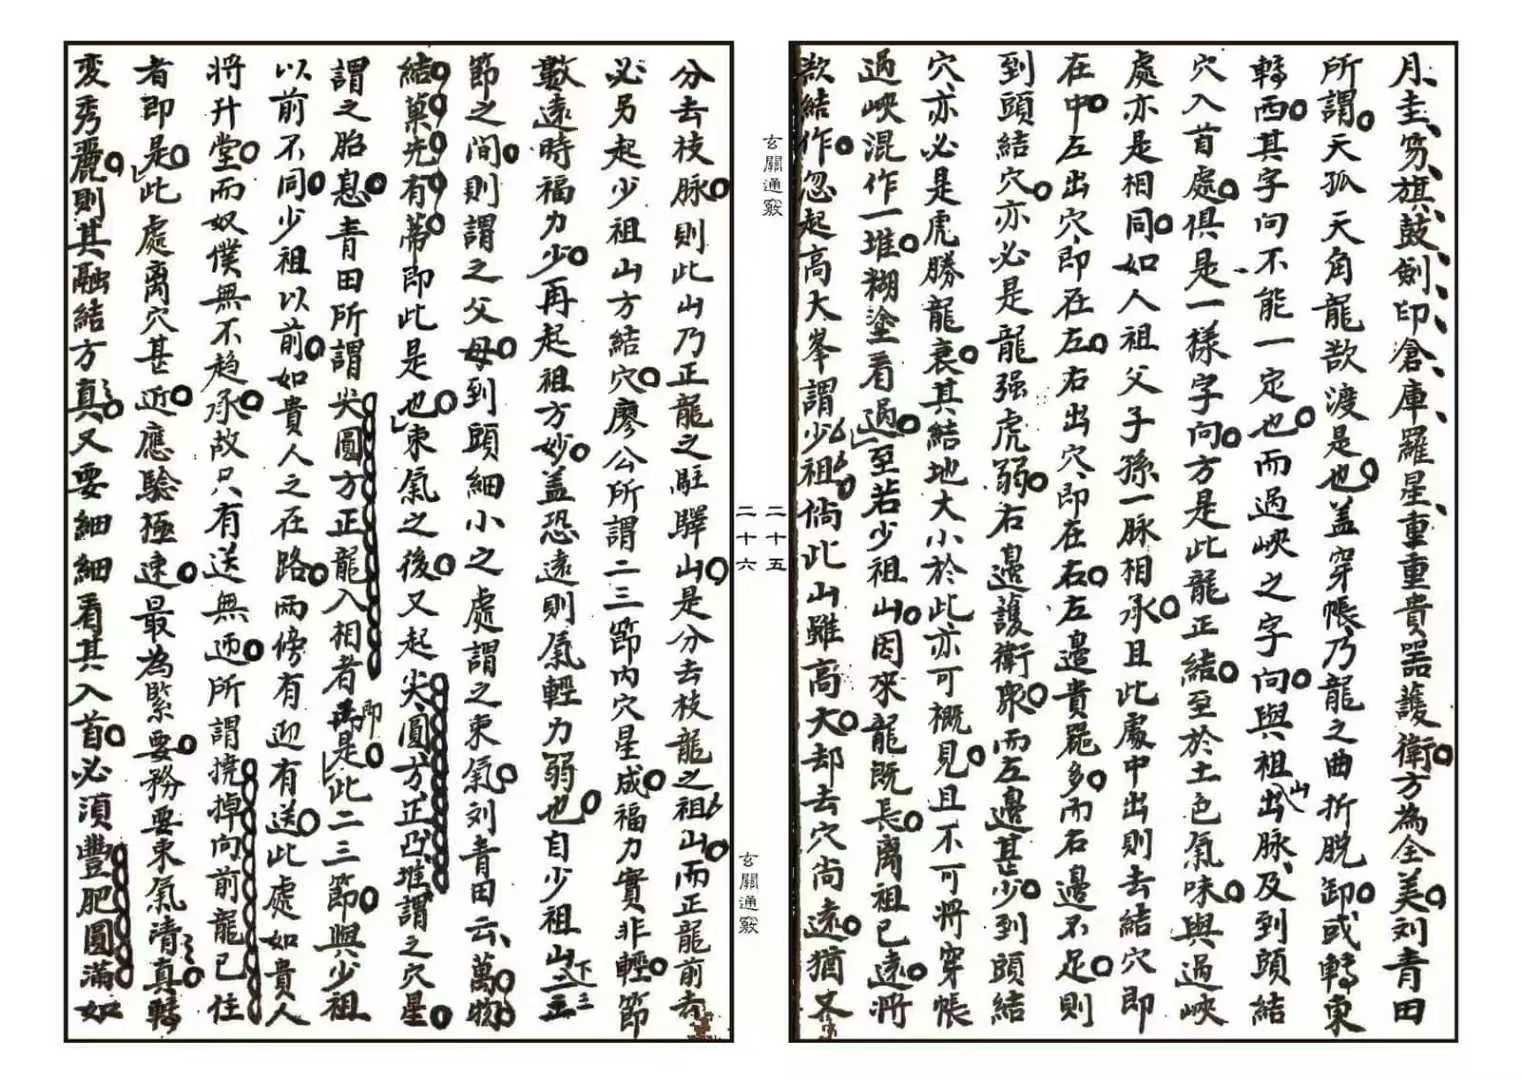 月、圭、笏、旗、鼓、劍、印、倉、庫、羅、星、重重貴器護衛方為全美刘青田
所謂天孤天角龍欲渡是也盖穿帳乃龍之曲折脱卸或轉東
轉西其字向不能一定也而過峽之字向與祖山出脉、及到頭結
穴入首處俱是一樣字向方是此龍正結至於土色氣味與過峽
處亦是相同如人祖父子孫一脉相承且此處中出則去結穴即
在中左出穴、即在左右出穴、即在右左邉貴器多而右邉不足則
到頭結穴亦必是龍强虎弱右邉護衛衆而左邉甚少到頭結
穴、亦必是虎勝龍衰其結地大小於此亦可概見且不可將穿帳
過峽混作一堆糊塗看過至若少祖山因來龍既長离祖已遠將
欲結作忽起高大峯謂少祖倘此山雖高大却去穴尚遠猶又
玄關通竅
二十五
二十六
玄關通竅
分去枝脉則此山乃正龍之駐驛山是分去枝龍之祖山而正龍前去
必另起少祖山方結穴廖公所謂二三節内穴星成福力實非輕節
數遠時福力少再起祖方妙盖恐遠則氣輕力弱也自少祖山下二三
節之間則謂之父母到頭細小之處謂之束氣刘青田云、萬物
結菓先有蒂即此是也束氣之後又起尖、圓、方、正凸堆謂之穴星
謂之胎息青田所謂尖圓方正龍入相者即是此二三節與少祖
以前不同少祖以前如貴人之在路两傍有迎有送此處如貴人
將升堂而奴僕無不趋承故只有送無迊所謂挠掉向前龍已住
者即是此處离穴甚近應驗極速最為緊要務要束氣清真轉
变秀麗則其融結方真又要細細看其入首必須豐肥圓滿如